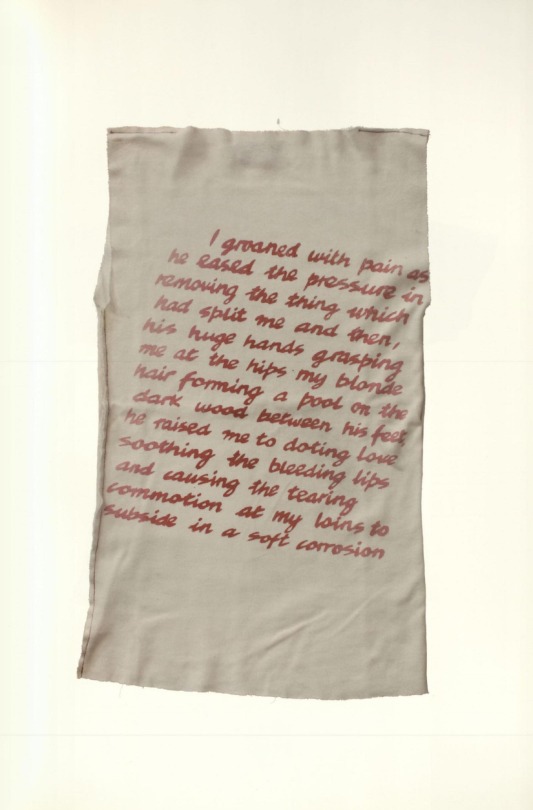 I groaned with pain as
he eased the pressure in
removing the thing which
had split me and then,
his huge hands grasping
me at the hips my blonde
hair forming a pool on the
dark wood between his feet
he raised me to doting love
soothing the bleeding lips
and causing the tearing
commotion at my loins to
subside in a soft corrosion